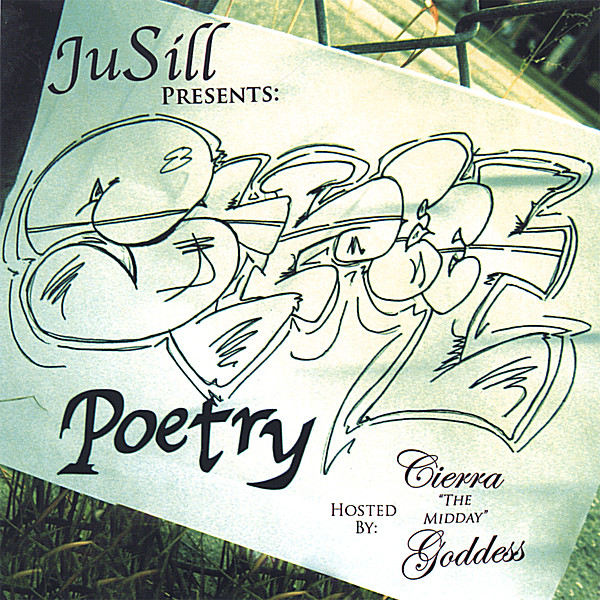 JuSill
PRESENTS:
Poetry
HOSTED BY:
Cierra
"THE MIDDAY"
Goddess